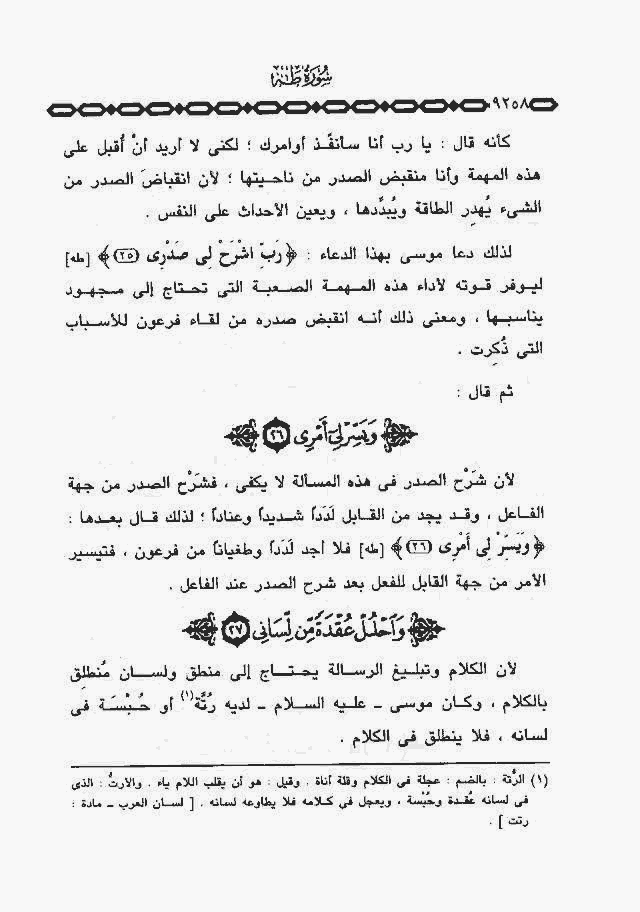 سُورَةُ طٰهٰ
٩٢٥٨
كأنه قال : يا رب أنا سأنفِّذ أوامرك ؛ لكنى لا أريد أنْ أُقبل على
هذه المهمة وأنا منقبض الصدر من ناحيتها ؛ لأن انقباضَ الصدر من
الشىء يُهدِر الطاقة ويُبدِّدها ، ويعين الأحداث على النفس .
لذلك دعا موسى بهذا الدعاء : ﴿ رَبِّ اشْرَحْ لِى صَدْرِى (٢٥) ﴾ [طه]
ليوفر قوته لأداء هذه المهمة الصعبة التى تحتاج إلى مجهود
يناسبها ، ومعنى ذلك أنه انقبض صدره من لقاء فرعون للأسباب
التى ذُكِرت .
ثم قال :
وَيَسِّرْ لِىٓ أَمْرِى ٢٦
لأن شَرْح الصدر فى هذه المسألة لا يكفى ، فشَرْح الصدر من جهة
الفاعل ، وقد يجد من القابل لَدَداً شديداً وعناداً ؛ لذلك قال بعدها :
﴿ وَيَسِّرْ لِى أَمْرِى (٢٦) ﴾ [طه] فلا أجد لَدَداً وطغياناً من فرعون ، فتيسير
الأمر من جهة القابل للفعل بعد شرح الصدر عند الفاعل .
وَٱحْلُلْ عُقْدَةً مِّن لِّسَانِى ٢٧
لأن الكلام وتبليغ الرسالة يحتاج إلى منطق ولسان مُنطلِق
بالكلام ، وكان موسى ـ عليه السلام ـ لديه رُتَّة(١) أو حُبْسَة فى
لسانه ، فلا ينطلق فى الكلام .
(١) الرُّتة : بالضم : عجلة فى الكلام وقلة أناة . وقيل : هو أن يقلب اللام ياء . والأرتُّ : الذى
فى لسانه عُقدة وحُبْسة ، ويعجل فى كلامه فلا يطاوعه لسانه . [ لسان العرب ـ مادة :
رتت ] .